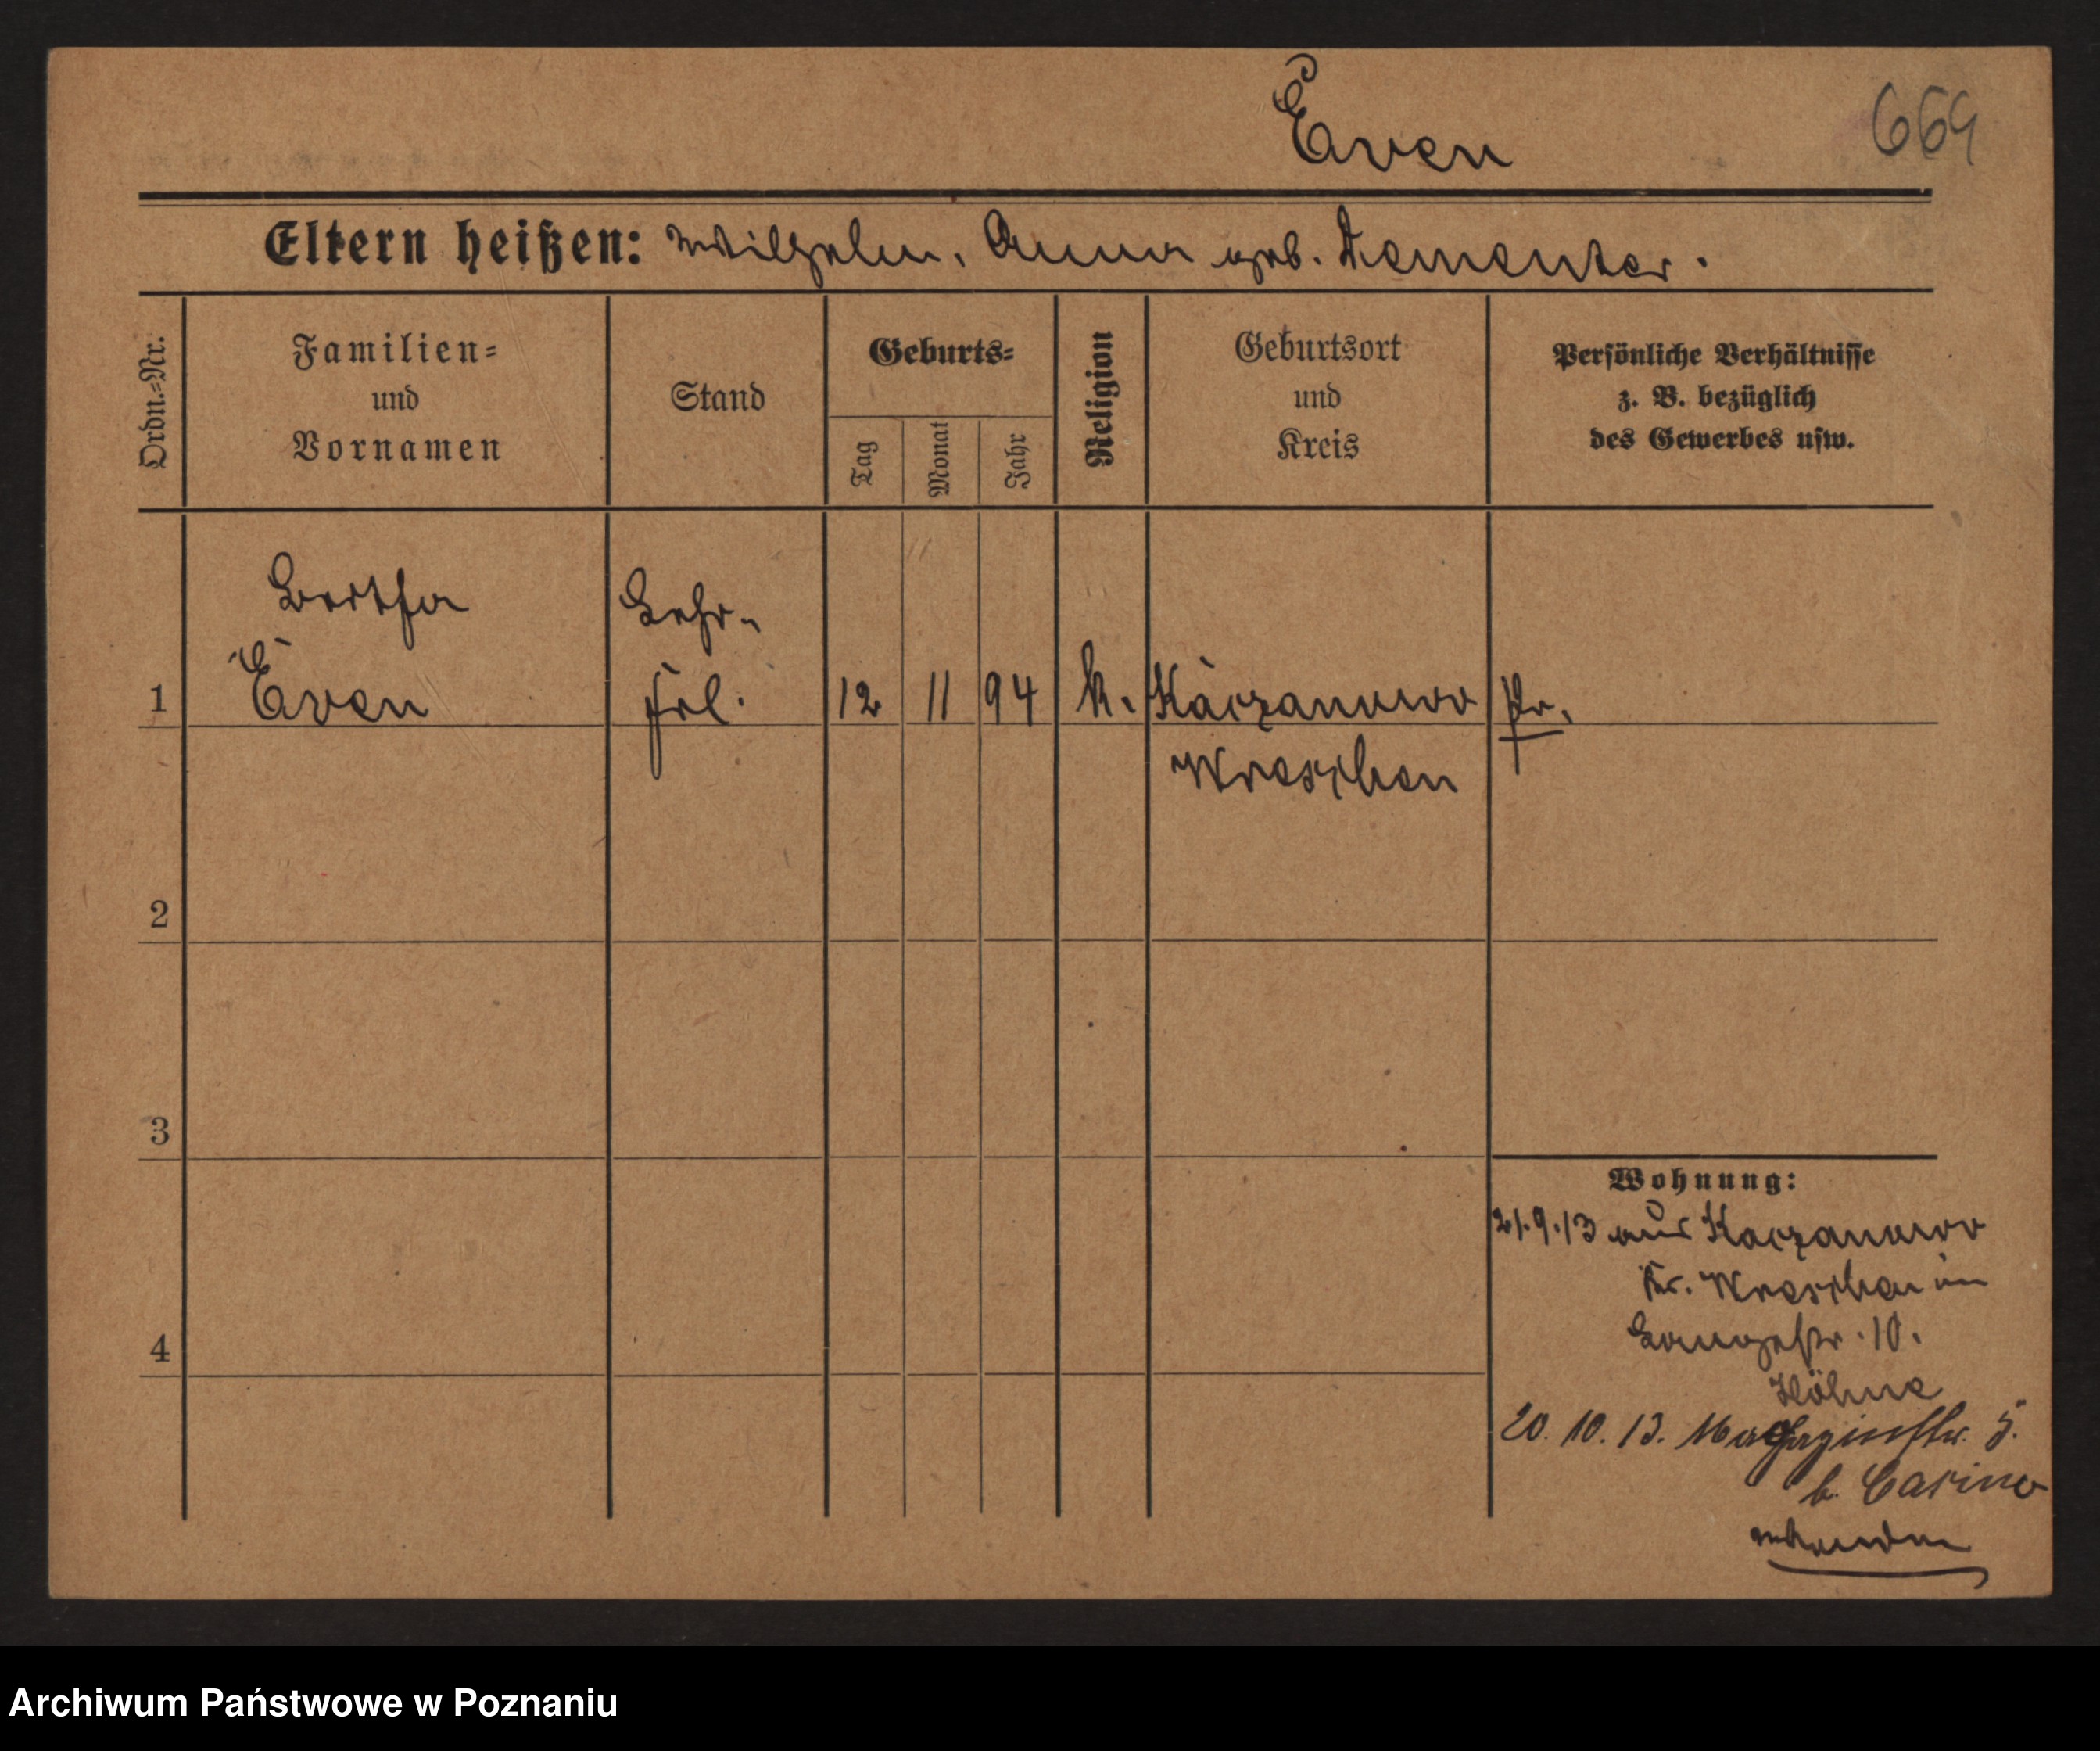 Even
669
Eltern heißen: Wilhelm, Anna geb. Dementer.
Ordn.=Nr.
Familien=
und
Vornamen
Stand
Geburts=
Tag
Monat
Jahr
Religion
Geburtsort
und
Kreis
Persönliche Verhältnisse
z. B. bezüglich
des Gewerbes usw.
Bertha Lehr-
1 Even frl. 12 11 94 k. Kaczanowo Pr.
Wreschen
2
3
4
Wohnung:
21.9.13 aus Kaczanowo
Kr. Wreschen in
Langestr. 10.
Höhne
20. 10. 13. Magazinstr. 5.
b. Casino
Archiwum Państwowe w Poznaniu